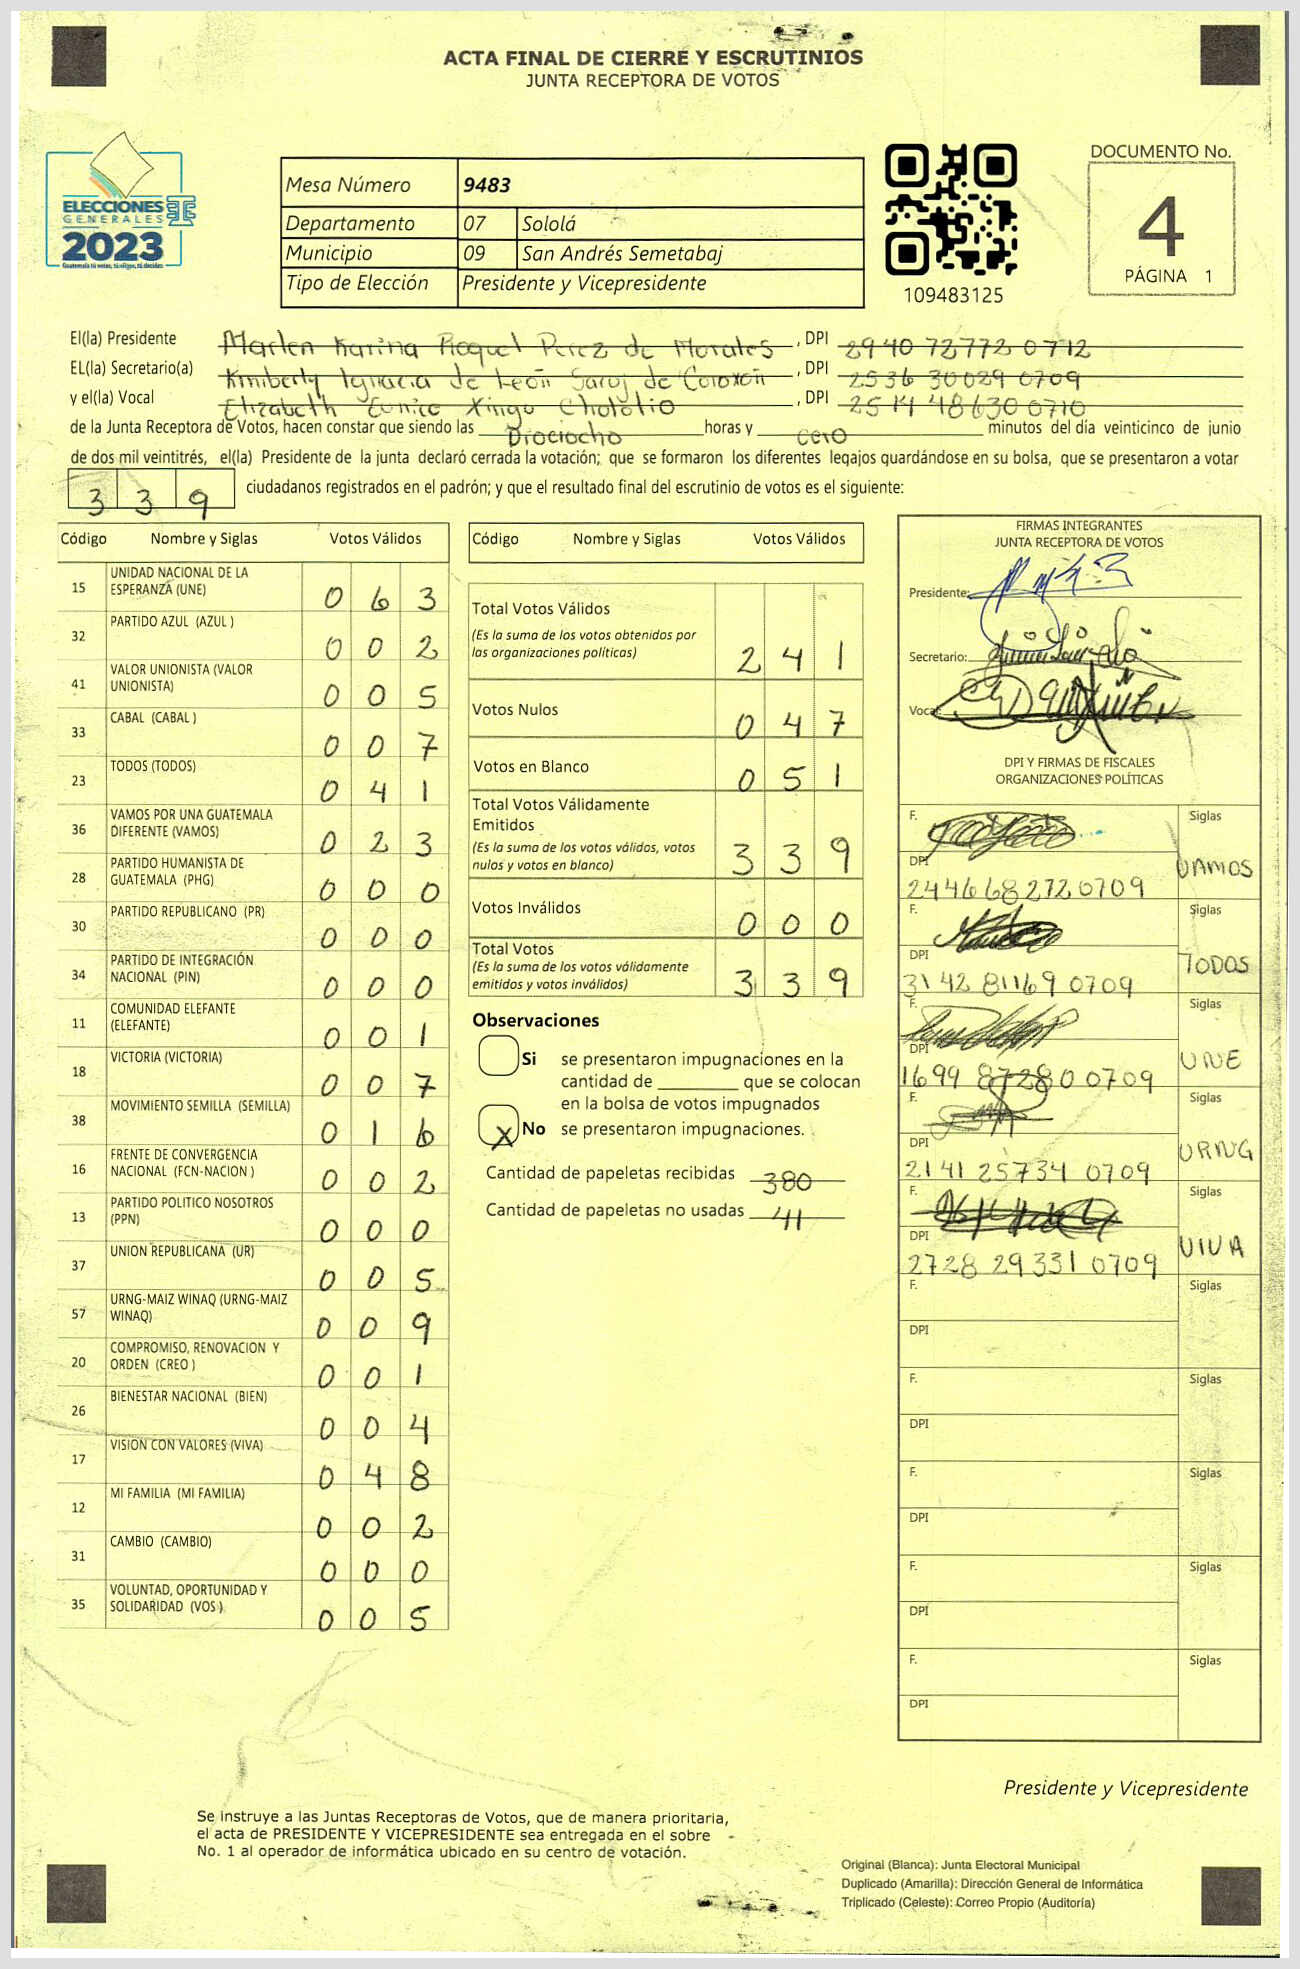 ACTA FINAL DE CIERRE Y ESCRUTINIOS
JUNTA RECEPTORA DE VOTOS
ELECCIONES
GENERALES
2023
Guatemala tú votas, tú eliges, tú decides
Mesa Número 9483
Departamento 07 Sololá
Municipio 09 San Andrés Semetabaj
Tipo de Elección Presidente y Vicepresidente
109483125
DOCUMENTO No.
4
PÁGINA 1
El(la) Presidente Marlen Karina Raquel Perez de Morales, DPI 2940 72772 0712
EL(la) Secretario(a) Kimberly Ignacia de León Saroj de Coroxón, DPI 2536 30029 0709
y el(la) Vocal Elizabeth Eunice Xingo Cholotio, DPI 2514 48630 0710
de la Junta Receptora de Votos, hacen constar que siendo las Dieciocho horas y cero minutos del día veinticinco de junio
de dos mil veintitrés, el(la) Presidente de la junta declaró cerrada la votación; que se formaron los diferentes legajos guardándose en su bolsa, que se presentaron a votar
339 ciudadanos registrados en el padrón; y que el resultado final del escrutinio de votos es el siguiente:
Código Nombre y Siglas Votos Válidos
15 UNIDAD NACIONAL DE LA
ESPERANZA (UNE) 0 6 3
32 PARTIDO AZUL (AZUL ) 0 0 2
41 VALOR UNIONISTA (VALOR
UNIONISTA) 0 0 5
33 CABAL (CABAL ) 0 0 7
23 TODOS (TODOS) 0 4 1
36 VAMOS POR UNA GUATEMALA
DIFERENTE (VAMOS) 0 2 3
28 PARTIDO HUMANISTA DE
GUATEMALA (PHG) 0 0 0
30 PARTIDO REPUBLICANO (PR) 0 0 0
34 PARTIDO DE INTEGRACIÓN
NACIONAL (PIN) 0 0 0
11 COMUNIDAD ELEFANTE
(ELEFANTE) 0 0 1
18 VICTORIA (VICTORIA) 0 0 7
38 MOVIMIENTO SEMILLA (SEMILLA) 0 1 6
16 FRENTE DE CONVERGENCIA
NACIONAL (FCN-NACION ) 0 0 2
13 PARTIDO POLITICO NOSOTROS
(PPN) 0 0 0
37 UNION REPUBLICANA (UR) 0 0 5
57 URNG-MAIZ WINAQ (URNG-MAIZ
WINAQ) 0 0 9
20 COMPROMISO, RENOVACION Y
ORDEN (CREO ) 0 0 1
26 BIENESTAR NACIONAL (BIEN) 0 0 4
17 VISION CON VALORES (VIVA) 0 4 8
12 MI FAMILIA (MI FAMILIA) 0 0 2
31 CAMBIO (CAMBIO) 0 0 0
35 VOLUNTAD, OPORTUNIDAD Y
SOLIDARIDAD (VOS ) 0 0 5
Código Nombre y Siglas Votos Válidos
Total Votos Válidos
(Es la suma de los votos obtenidos por
las organizaciones políticas) 2 4 1
Votos Nulos 0 4 7
Votos en Blanco 0 5 1
Total Votos Válidamente
Emitidos
(Es la suma de los votos válidos, votos
nulos y votos en blanco) 3 3 9
Votos Inválidos 0 0 0
Total Votos
(Es la suma de los votos válidamente
emitidos y votos inválidos) 3 3 9
Observaciones
Si se presentaron impugnaciones en la
cantidad de ________ que se colocan
en la bolsa de votos impugnados
X No se presentaron impugnaciones.
Cantidad de papeletas recibidas 380
Cantidad de papeletas no usadas 41
FIRMAS INTEGRANTES
JUNTA RECEPTORA DE VOTOS
Presidente:
Secretario:
Vocal:
DPI Y FIRMAS DE FISCALES
ORGANIZACIONES POLÍTICAS
F. Siglas
DPI VAMOS
2446 68272 0709
F. Siglas
DPI TODOS
3142 81169 0709
F. Siglas
DPI UNE
1699 87280 0709
F. Siglas
DPI URNG
2141 25734 0709
F. Siglas
DPI VIVA
2728 29331 0709
F. Siglas
DPI
F. Siglas
DPI
F. Siglas
DPI
F. Siglas
DPI
F. Siglas
DPI
Presidente y Vicepresidente
Se instruye a las Juntas Receptoras de Votos, que de manera prioritaria,
el acta de PRESIDENTE Y VICEPRESIDENTE sea entregada en el sobre
No. 1 al operador de informática ubicado en su centro de votación.
Original (Blanca): Junta Electoral Municipal
Duplicado (Amarilla): Dirección General de Informática
Triplicado (Celeste): Correo Propio (Auditoría)